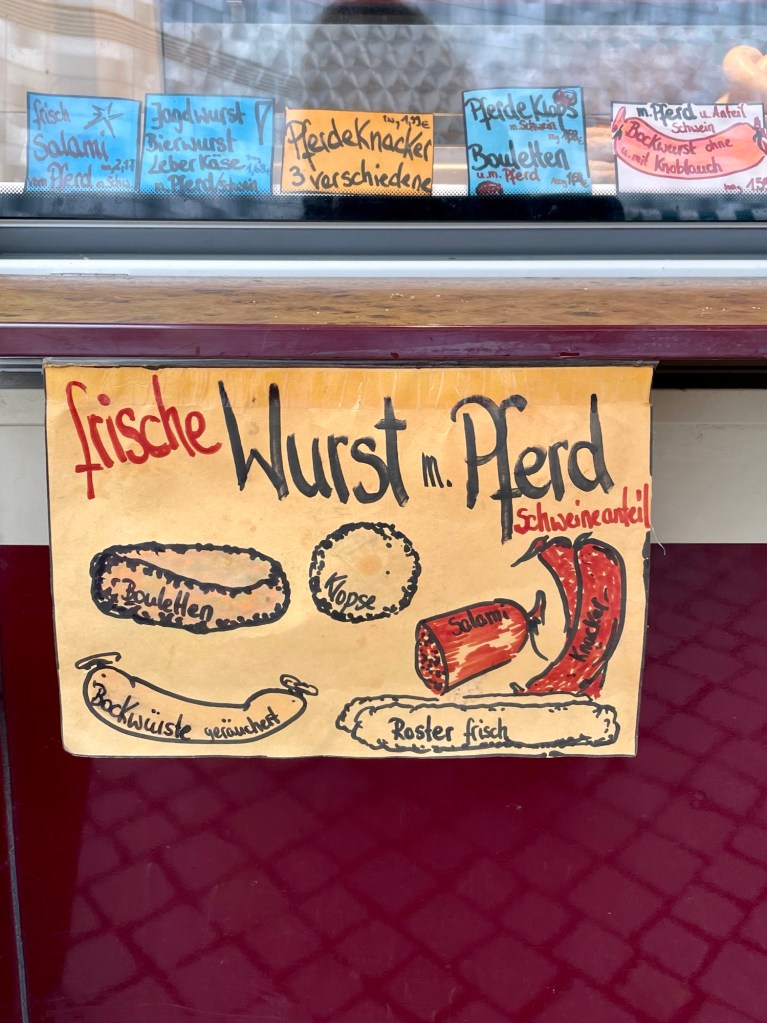 frisch
Salami
100g 2,17
vom Pferd u. Schw.
Jagdwurst
Bierwurst
Leber Käse
m. Pferd/schwein
100g 1,99 €
PferdeKnacker
3 verschiedene
Pferde Klops
m. Schwein
Bouletten
u. m. Pferd
m. Pferd u. Anteil
Schwein
Bockwurst ohne
u. mit Knoblauch
frische Wurst m. Pferd
schweineanteil
Bouletten
Klopse
Salami
Knacker
Bockwürste geräuchert
Roster frisch